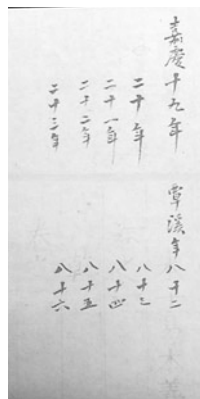 嘉慶十九年 覃溪年八十二
二十年 八十三
二十一年 八十四
二十二年 八十五
二十三年 八十六